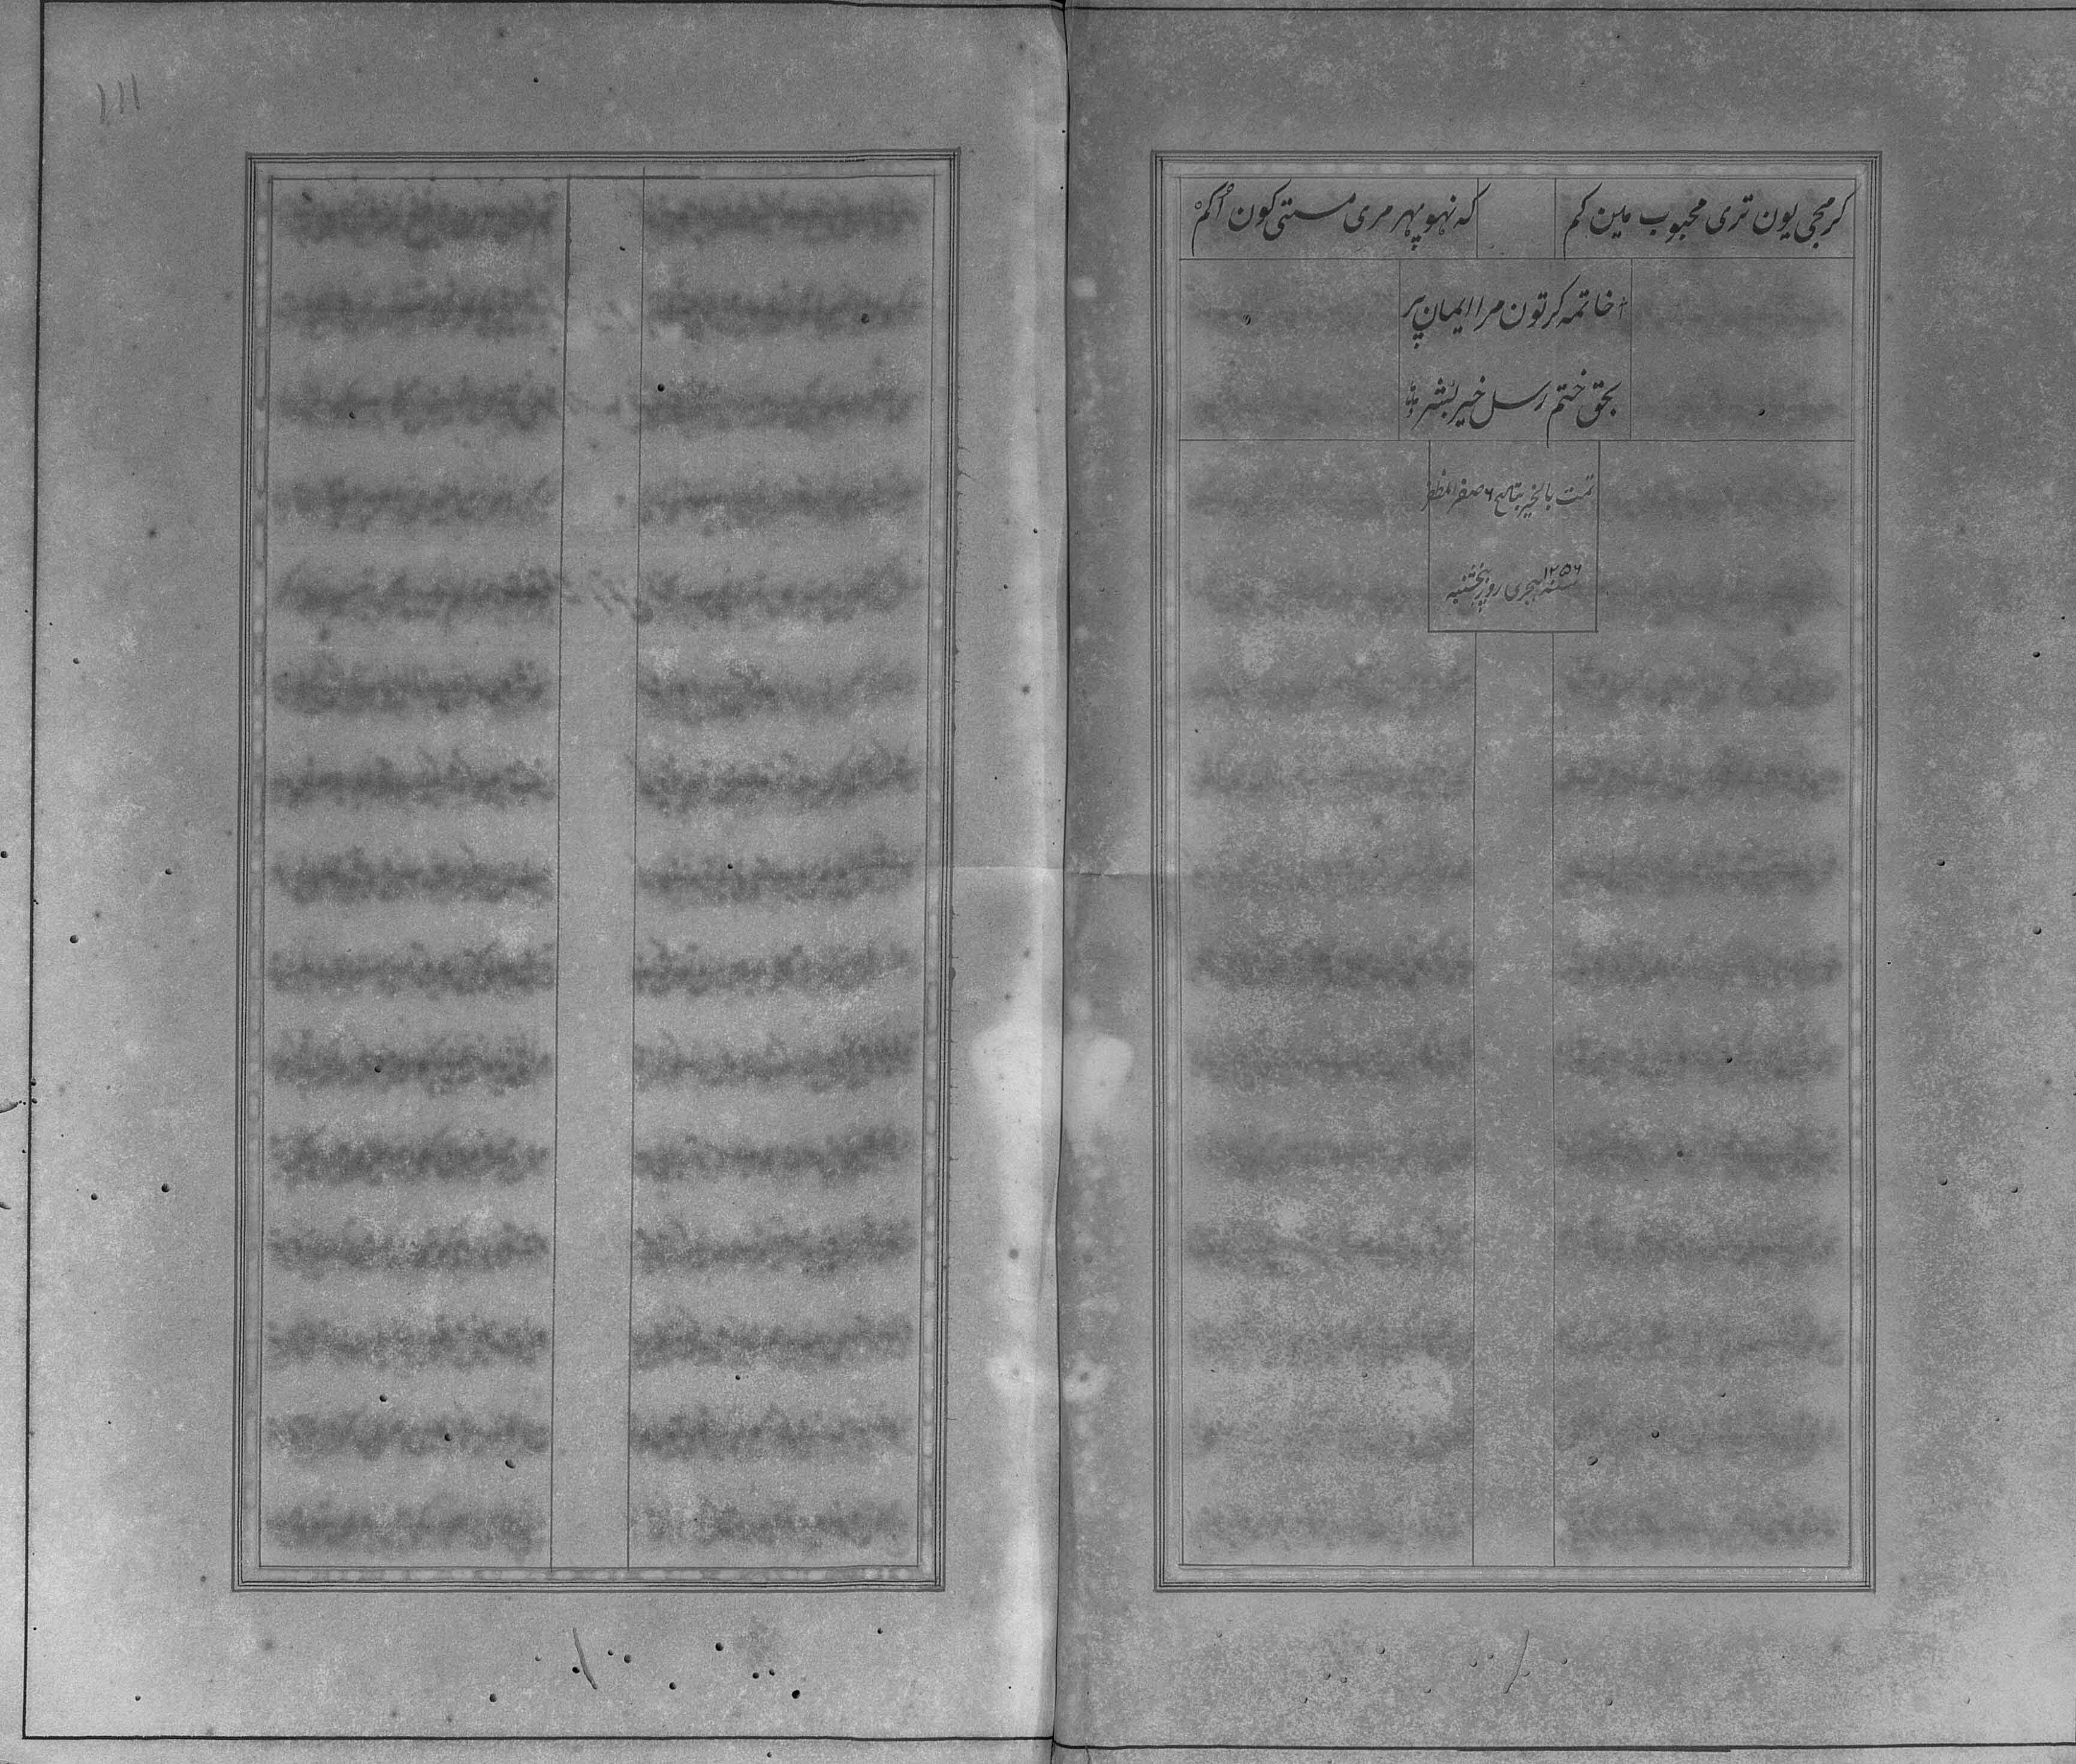 کر مجی یون تری محبوب مین کم
که نهو پهر مری مستی کون اکم
خاتمه کر تون مرا ایمان پر
بحق ختم رسل خیر بشر
تمت بالخیر بتاریخ ۶ صفر المظفر
سنه ۱۲۵۶ هجری روز پنجشنبه
۱۱۱